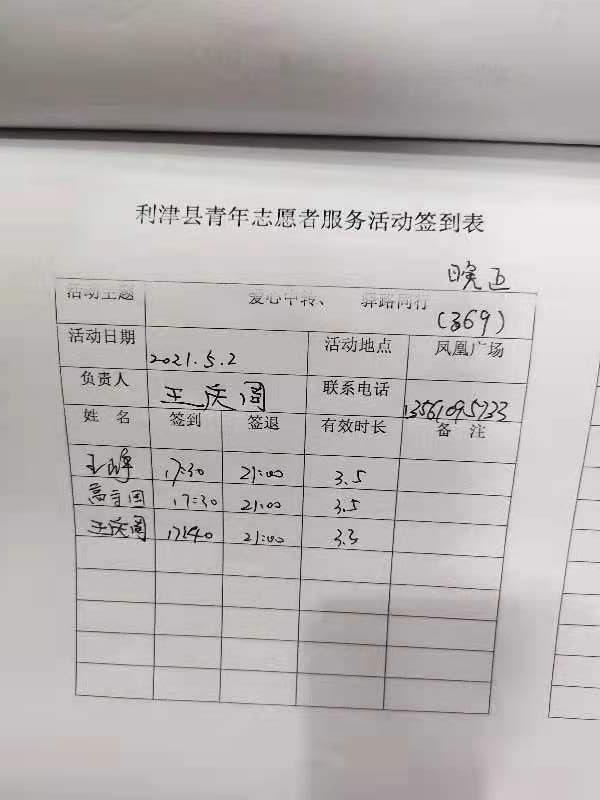 利津县青年志愿者服务活动签到表
晚
活动主题 爱心中转、 驿路同行
(369)
活动日期 2021.5.2 活动地点 凤凰广场
负责人 王庆阁 联系电话 13561095733
姓 名 签到 签退 有效时长 备 注
17:30 21:00 3.5
高守国 17:30 21:00 3.5
王庆阁 17:40 21:00 3.3